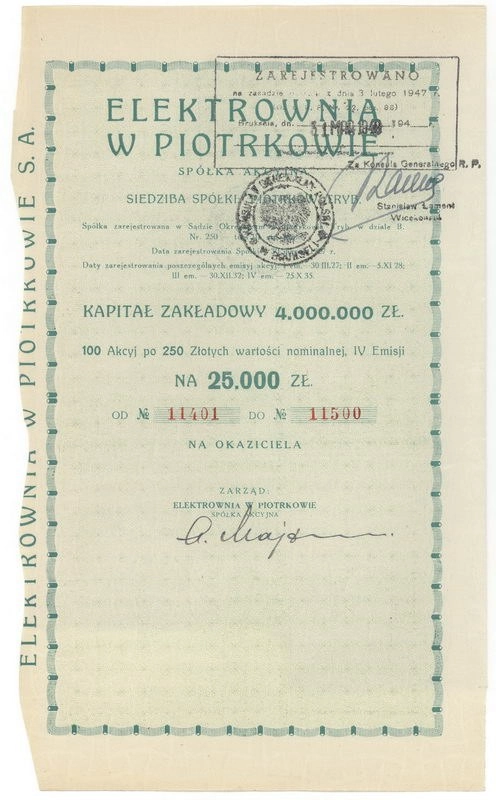 ZAREJESTROWANO
na zasadzie z dnia 3 lutego 1947 r.
Bruksela, dn. 31 MAR 1948 194 r.
Za Konsula Generalnego R. P.
Stanisław Łament
Wicekonsul
ELEKTROWNIA
W PIOTRKOWIE
SPÓŁKA AKCYJNA
SIEDZIBA SPÓŁKI: PIOTRKÓW TRYB.
Spółka zarejestrowana w Sądzie w dziale B.
Nr. 250
Data zarejestrowania
Daty zarejestrowania poszczególnych emisyj akcyj: I em. - 30.III.27; II em. - 5.XI 28;
III em. - 30.XII.32; IV em. - 25.X 35.
KAPITAŁ ZAKŁADOWY 4.000.000 ZŁ.
100 Akcyj po 250 Złotych wartości nominalnej, IV Emisji
NA 25.000 ZŁ.
OD № 11401 DO № 11500
NA OKAZICIELA
ZARZĄD:
ELEKTROWNIA W PIOTRKOWIE
SPÓŁKA AKCYJNA
ELEKTROWNIA W PIOTRKOWIE S. A.